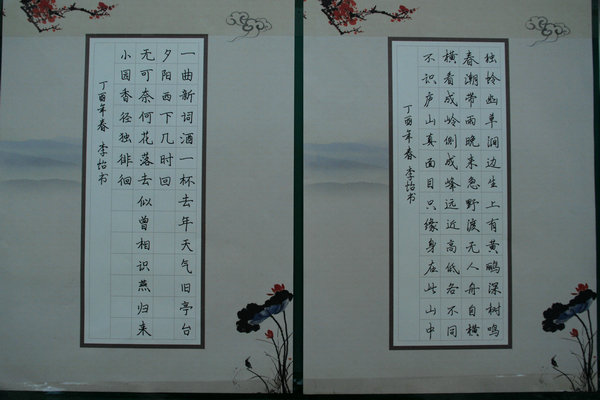 一曲新词酒一杯去年天气旧亭台
夕阳西下几时回
无可奈何花落去似曾相识燕归来
小园香径独徘徊
丁酉年春 李怡书
独怜幽草涧边生上有黄鹂深树鸣
春潮带雨晚来急野渡无人舟自横
横看成岭侧成峰远近高低各不同
不识庐山真面目只缘身在此山中
丁酉年春 李怡书